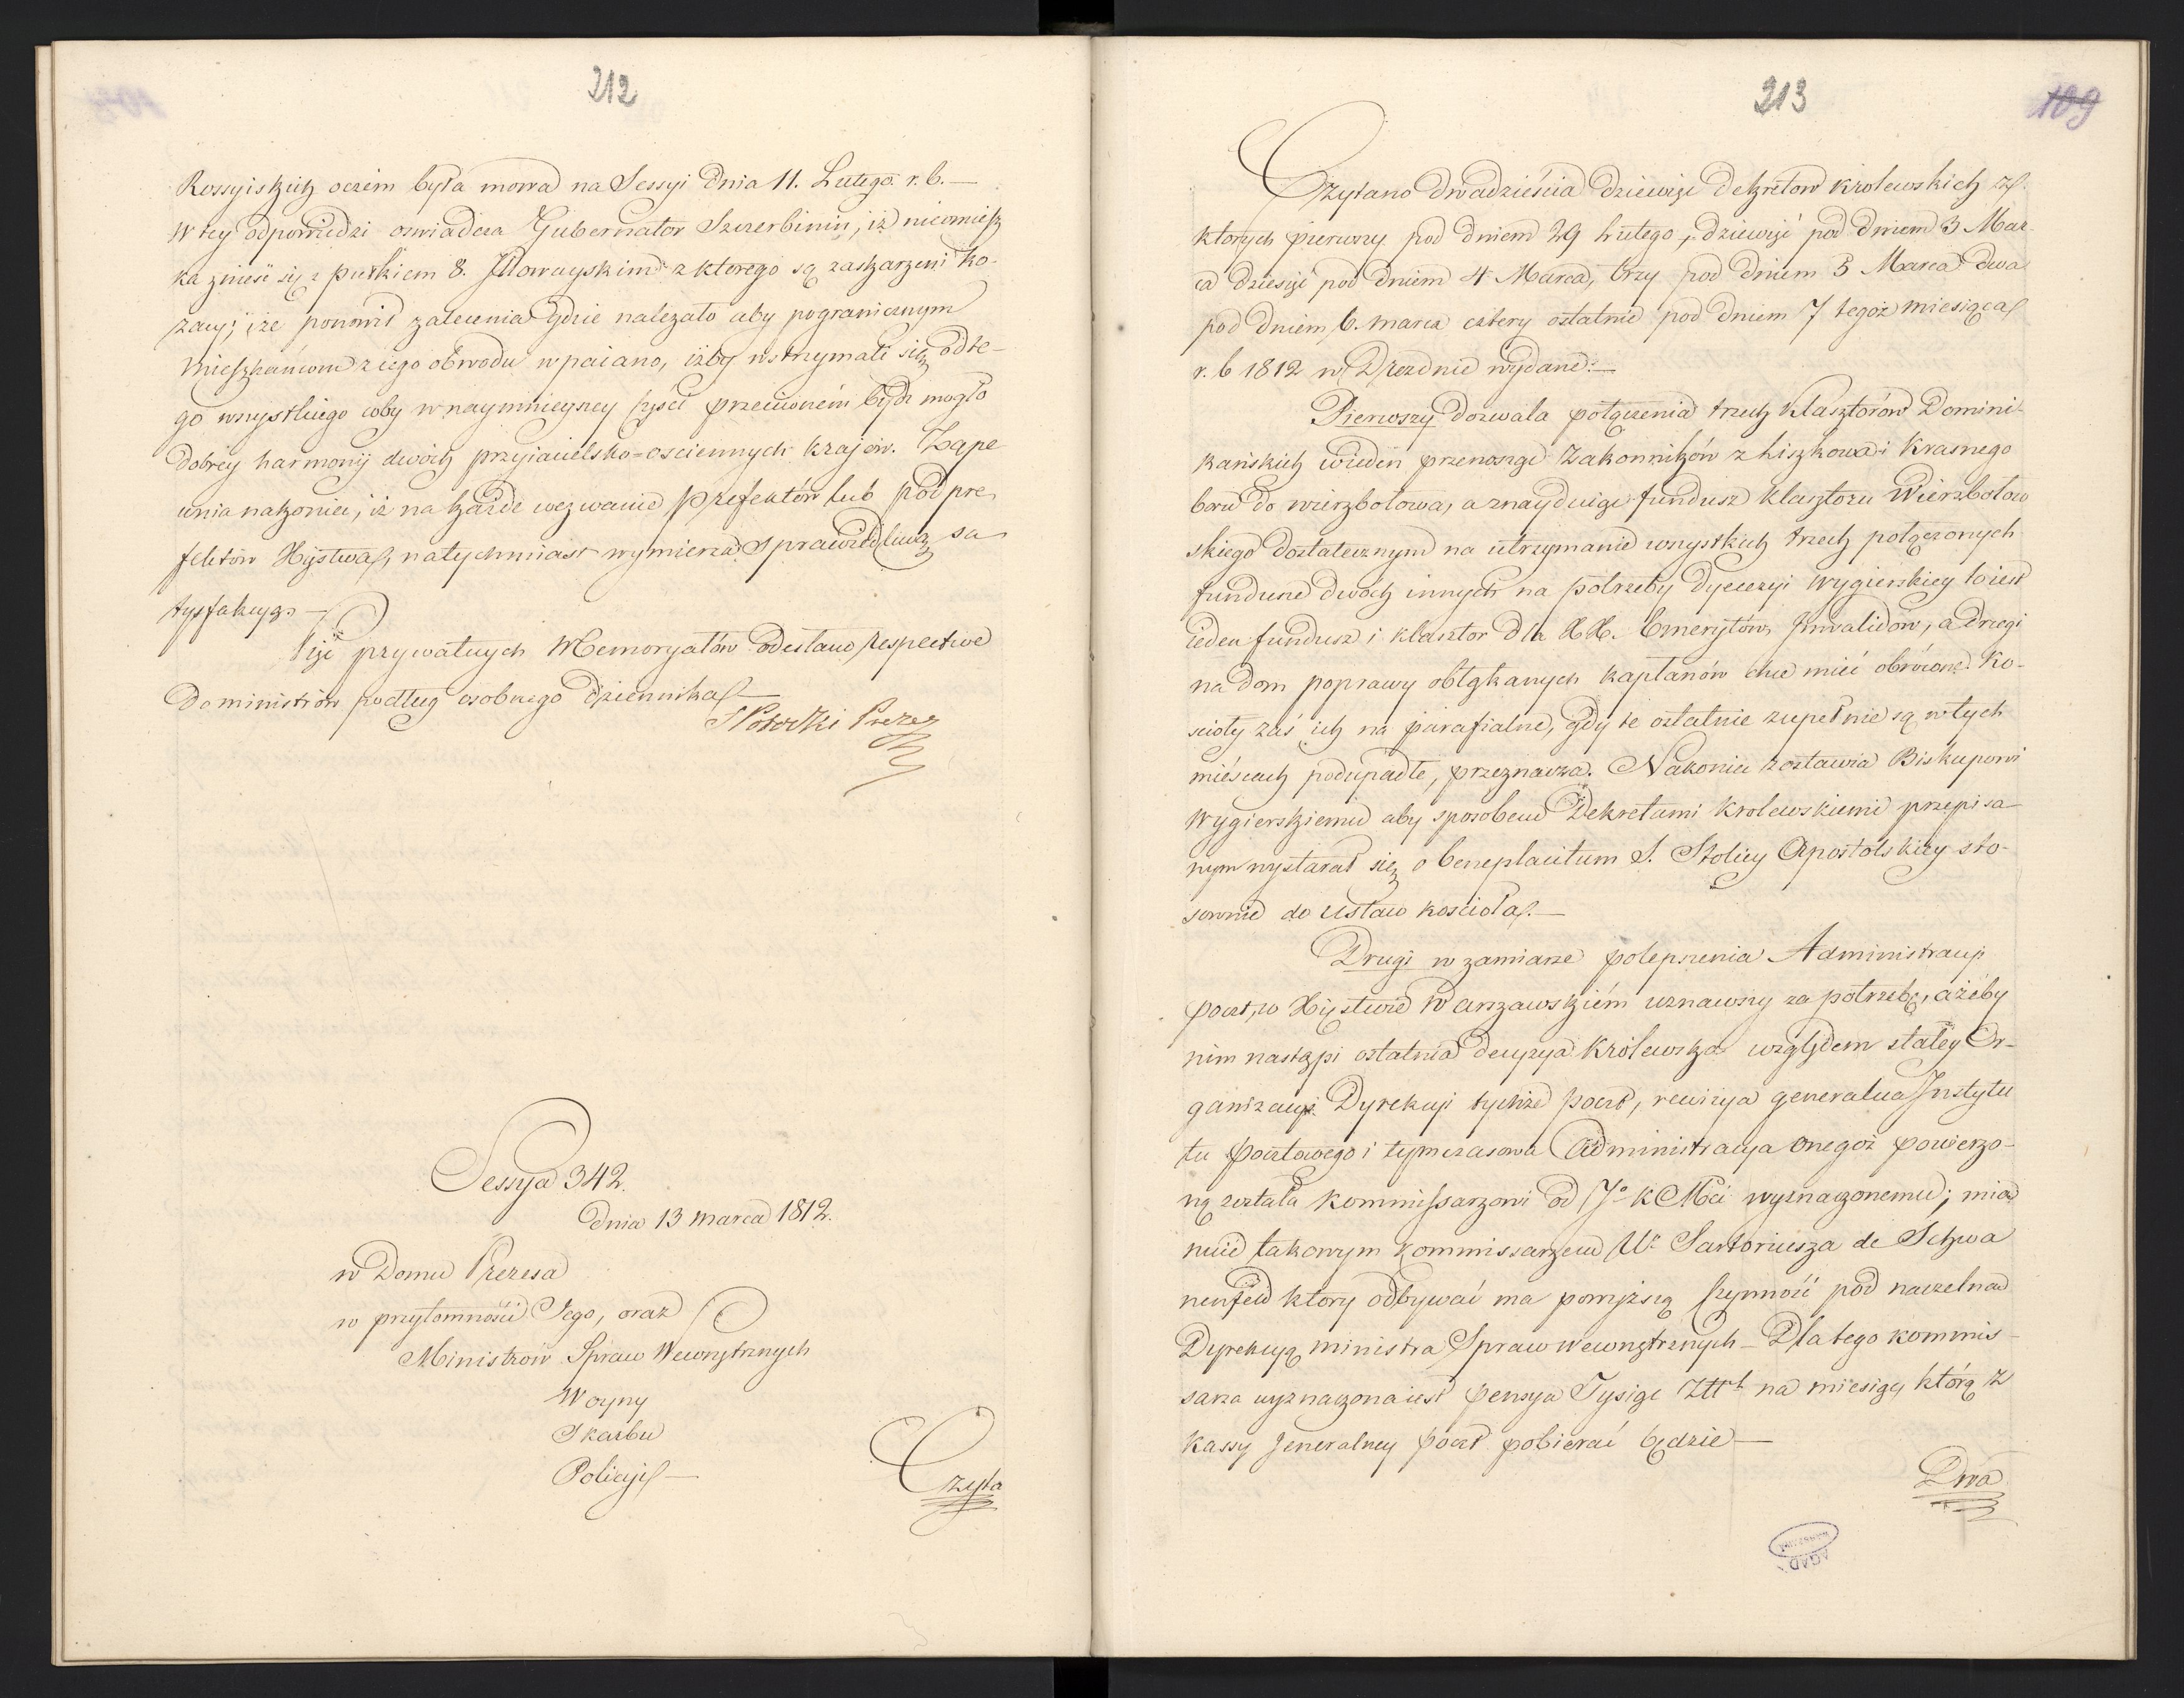 212
Rossyiskich oczém była mowa na Sessyi dnia 11. Lutego r. b. —
w tey odpowiedzi oswiadcza Gubernator Szczerbinin, iż nieomiesz
ka znieść się z pułkiem 8. Jłowayskim z ktorego są zaskarzeni Ko-
zacy; iże ponowił zalecenia gdzie należało aby pogranicznym
Mieszkańcom z iego obwodu wpaiano, iżby wstrzymali się od te-
go wszystkiego coby w naymnieyszey części przeciwném bydź mogło
dobrey harmonij dwóch przyiacielsko-osciennych Krajów. Zape
wnia nakoniec, iż na każde wezwanie Prefektów lub podpre
fektów Xięstwa, natychmiast wymierzać sprawiedliwą sa
tysfakcyą. —
Pięć prywatnych Memoryałów odesłano respective
do ministrów podług osobnego dziennika —
S Potocki Prezes
Sessya 342.
Dnia 13 Marca 1812.
w Domu Prezesa
w przytomności Jego, oraz
Ministrów Spraw Wewnętrznych
Woyny
Skarbu
Policyi —
Czyta
213
109
Czytano dwadzieścia dziewięć dekretow Krolewskich z
ktorych pierwszy pod dniem 29 Lutego, dziewięć pod dniem 3 Mar-
ca dziesięć pod dniem 4 Marca, trzy pod dniem 5 Marca dwa
pod dniem 6. marca cztery ostatnie pod dniem 7 tegoż miesiąca
r. b 1812 w Dreznie wydane: —
Pierwszy dozwala połączenia trzech Klasztorów Domini-
kańskich wieden przenosząc Zakonników z Liszkowa i Krasnego
boru do wierzbołowa, a znayduiąc fundusz klasztoru Wierzbołow
skiego dostatecznym na utrzymanie wszystkich trzech połączonych
fundusze dwóch innych na potrzeby Dyecezyi Wygierskiey to iest
ieden fundusz i klasztor dla XX. Emerytów, Jnwalidów, a drugi
na dom poprawy obłąkanych kapłanów chce mieć obrócone. Ko-
scioły zaś ich na parafialne, gdy te ostatnie zupełnie są w tych
mieścach podupadłe, przeznacza. Nakoniec zostawia Biskupowi
Wygierskiemu aby sposobem Dekretami Krolewskiemi przepisa-
nym wystarał się o beneplacitum S. Stolicy Apostolskiey sto-
sownie do Ustaw kościoła. —
Drugi w zamiarze polepszenia Administracyi
poczt, w Xięstwie Warszawskiém uznawszy za potrzebę, ażéby
nim nastąpi ostatnia decyzya Królewska względem stałey Or-
ganizacyi Dyrekcyi tychże poczt, rewizya generalna Jnstytu
tu pocztowego i tymczasowa Administracya onegoż powierzo-
ną została Kommissarzowi od Jo K Mci wyznaczonemu; mia
nuie takowym Kommissarzem Wo Sartoriusza de Schwa
nenfeld ktory odbywać ma powyższą czynność pod naczelną
Dyrekcyą ministra Spraw wewnętrznych — Dla tego kommis-
sarza wyznaczona iest pensya Tysiąc Złł na miesiąc którą z
Kassy Jeneralney poczt pobierać będzie —
Dwa
AGAD
WARSZAWA